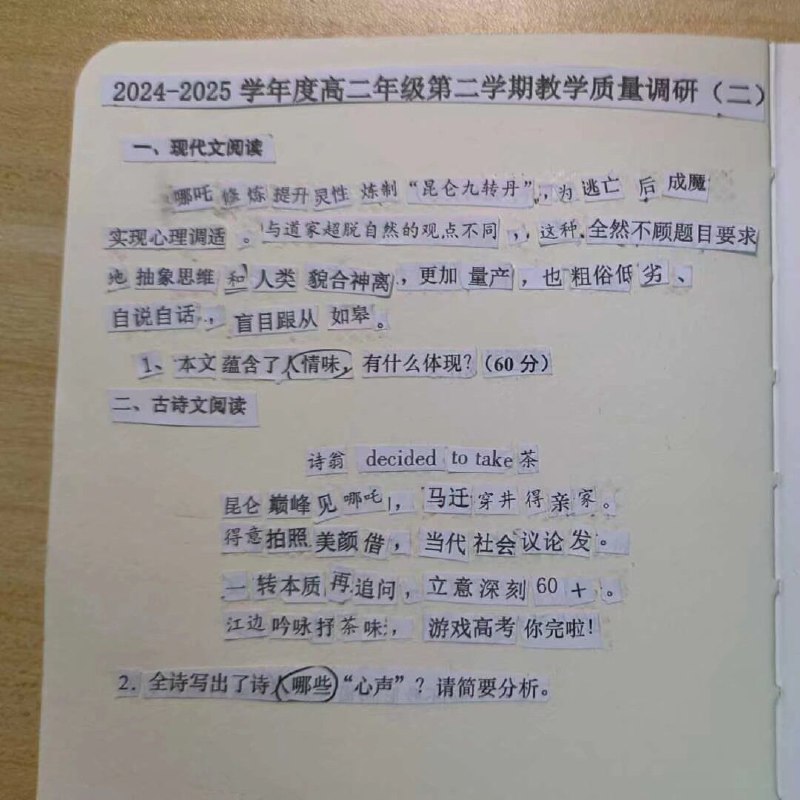 2024-2025 学年度高二年级第二学期教学质量调研（二）
一、现代文阅读
哪吒 修 炼 提升灵性 炼制“昆仑九转丹”，为 逃亡 后 成魔
实现心理调适 。与道家超脱自然的观点不同，，这种 全然不顾题目要求
地 抽象思维 和 人类 貌合神离，更加 量产，也 粗俗低 劣 、
自说自话，，盲目跟从 如皋。
1、本文 蕴含了人情味，有什么体现？（60 分）
二、古诗文阅读
诗翁 decided to take 茶
昆仑 巅峰 见 哪吒，马迁 穿 井 得 亲 家。
得意 拍照 美颜 借，当代 社会 议论 发。
一 转本质 再 追问，立意深刻 60 + 。
江边 吟咏 抒 茶 味，游戏高考 你完啦！
2. 全诗写出了诗人哪些“心声”？请简要分析。